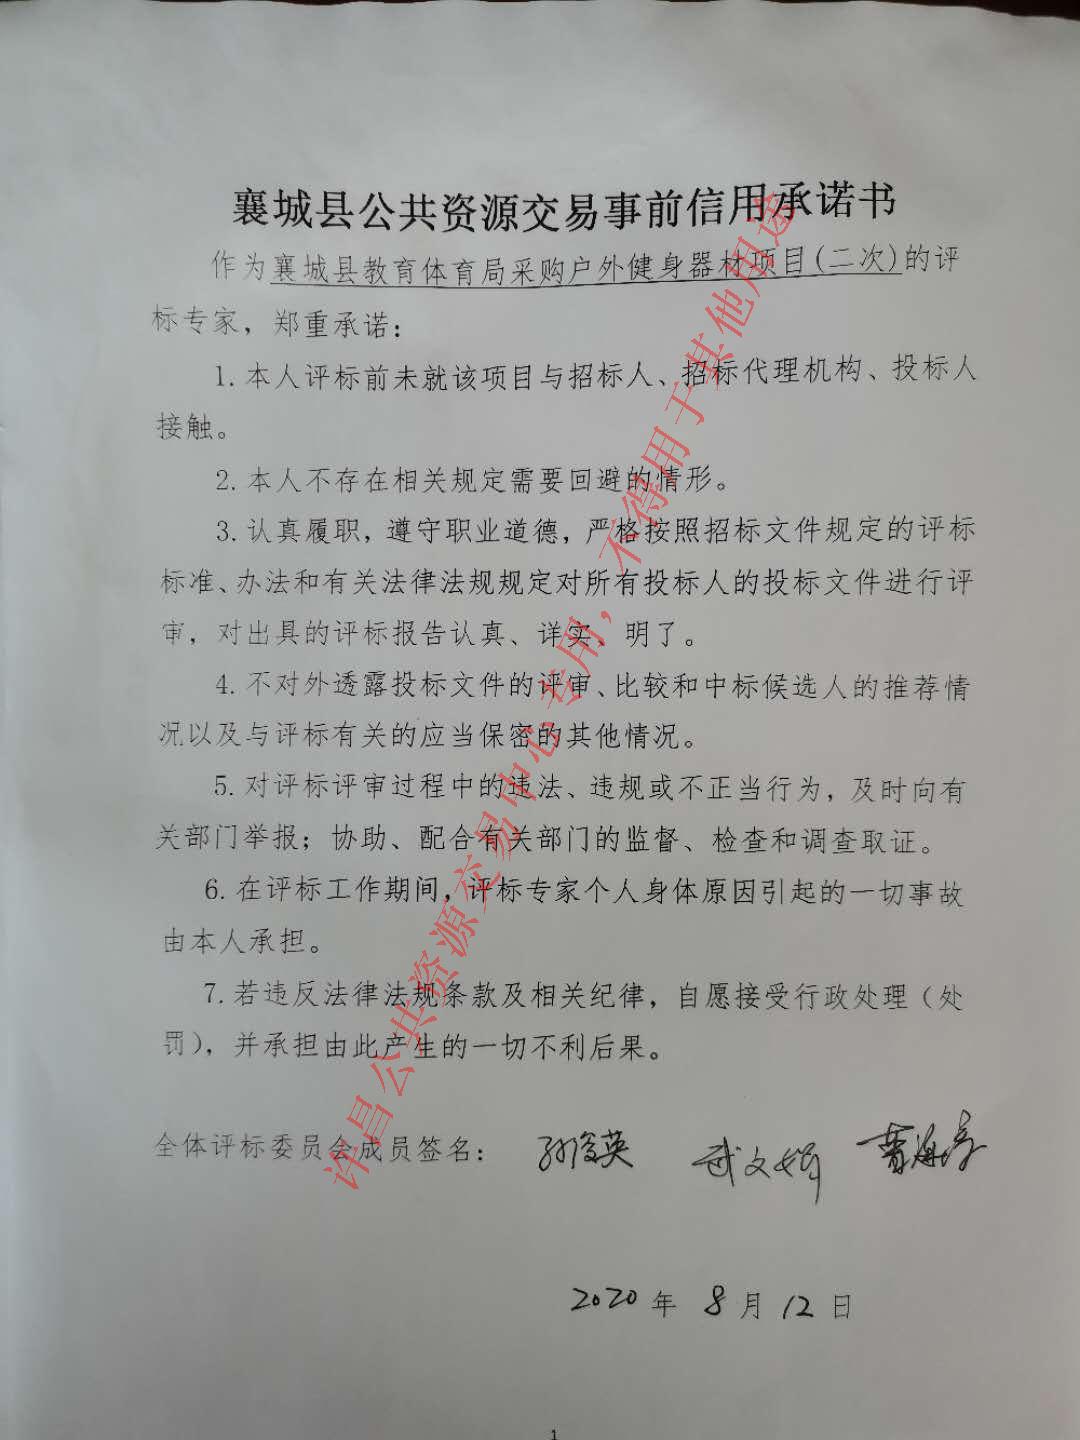 襄城县公共资源交易事前信用承诺书
作为襄城县教育体育局采购户外健身器材项目(二次)的评
标专家，郑重承诺：
1.本人评标前未就该项目与招标人、招标代理机构、投标人
接触。
2.本人不存在相关规定需要回避的情形。
3.认真履职，遵守职业道德，严格按照招标文件规定的评标
标准、办法和有关法律法规规定对所有投标人的投标文件进行评
审，对出具的评标报告认真、详实、明了。
4.不对外透露投标文件的评审、比较和中标候选人的推荐情
况以及与评标有关的应当保密的其他情况。
5.对评标评审过程中的违法、违规或不正当行为，及时向有
关部门举报；协助、配合有关部门的监督、检查和调查取证。
6.在评标工作期间，评标专家个人身体原因引起的一切事故
由本人承担。
7.若违反法律法规条款及相关纪律，自愿接受行政处理（处
罚），并承担由此产生的一切不利后果。
全体评标委员会成员签名： 孙俊英 武文娟
2020年 8月12日
1
许昌公共资源交易中心专用，不得用于其他用途